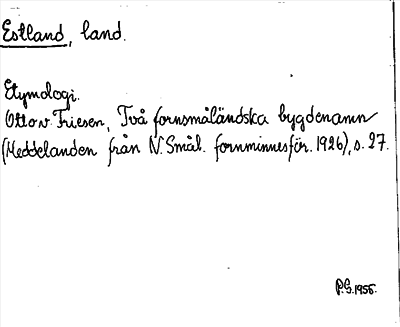 Estland, land.
Etymologi.
Otto v. Friesen, Två fornsmåländska bygdenamn
(Meddelanden från N. Smål. fornminnesför. 1926), s. 27.
P.G. 1955.